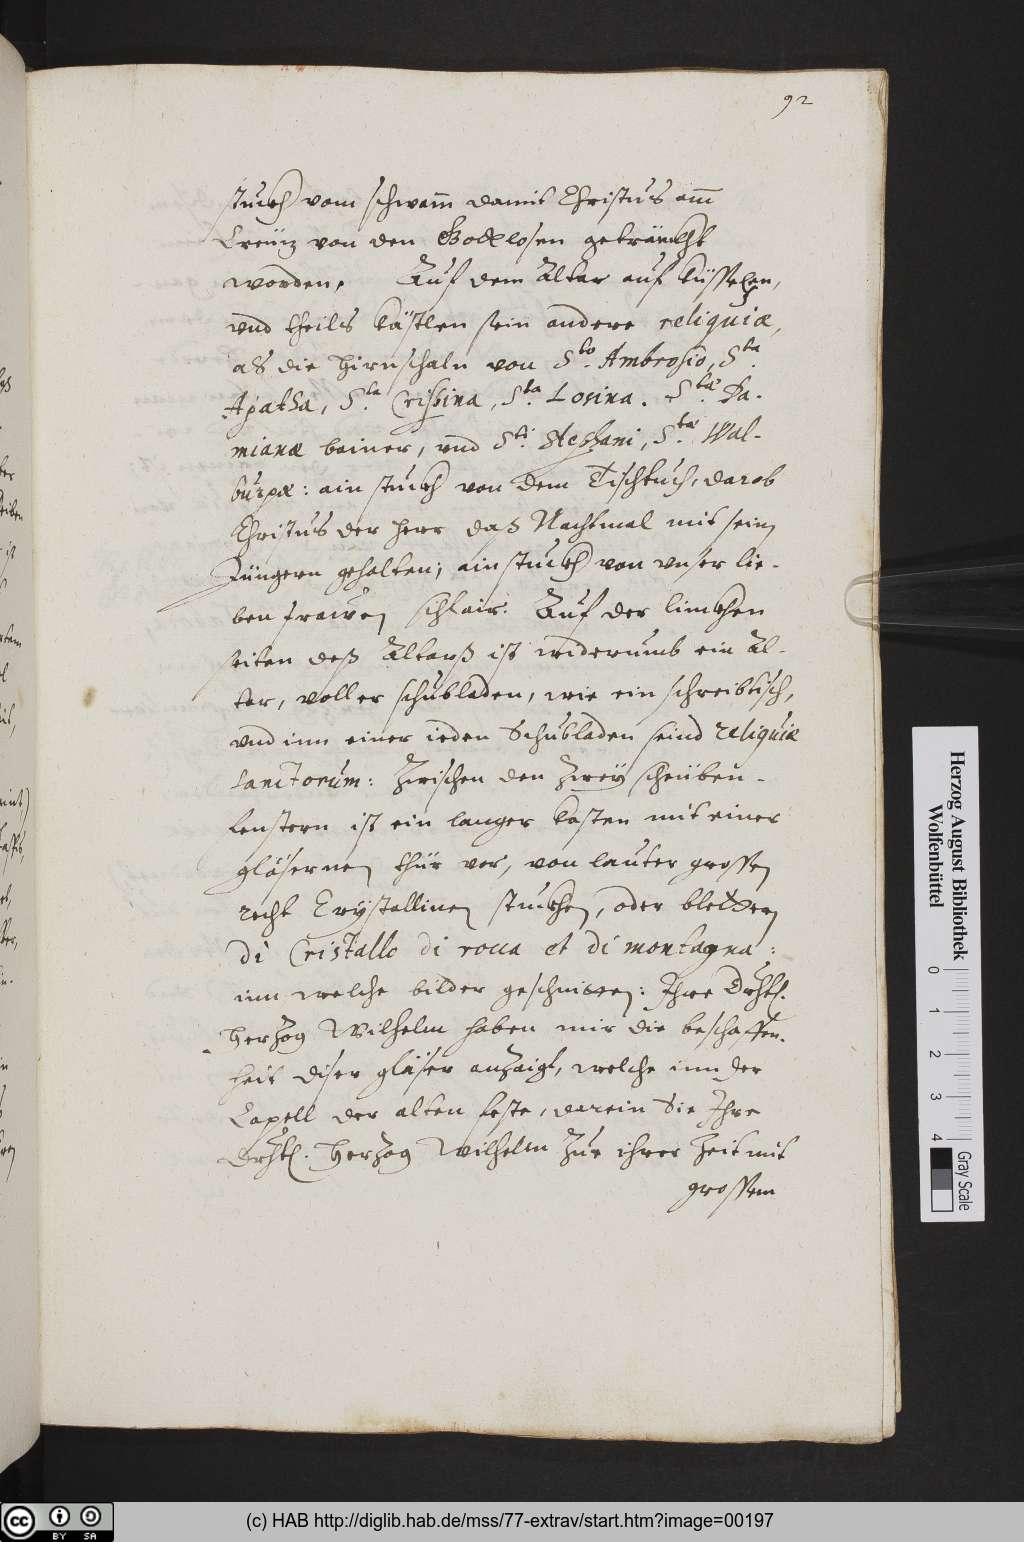 92
stuckh vom schwam̄ damit Christus am̄
Creütz von den Gottlosen getränckht
worden. Auf dem Altar auf küsselen,
vnd theils kästlen sein andere reliquiæ,
als die hirnschaln von Sto. Ambrosio, Sta.
Agatha, Sta. Crispina, Sta. Losina. Stæ. Da-
mianæ bainer, vnd Sti. Stephani, Stæ. Wal-
burgæ: ain stuckh von dem Tischtuch, darob
Christus der herr daß Nachtmal mit sein
Jüngern gehalten; ain stuckh von vnser lie-
ben frawen schlair: Auf der linckhen
seiten deß Altarß ist widerumb ein Al-
tar, voller schubladen, wie ein schreibtisch,
vnd inn einer ieden Schubladen seind reliquiæ
sanctorum: Zwischen den zwey scheüben-
fenstern ist ein langer kasten mit einer
gläsernen thür vor, von lauter grossen
recht Crystallinen stuckhen, oder blettern
di Cristallo di rocca et di montagna:
inn welche bilder geschnitten: Ihre Drhtl.
Herzog Wilhelm haben mir die beschaffen-
heit diser gläser anzaigt, welche inn der
Capell der alten feste, darein Sie Ihre
Drhtl. Herzog Wilhelm zur ihrer Zeit mit
grossem
Herzog August Bibliothek
Wolfenbüttel
0 1 2 3 4
Gray Scale
cc BY SA
(c) HAB http://diglib.hab.de/mss/77-extrav/start.htm?image=00197